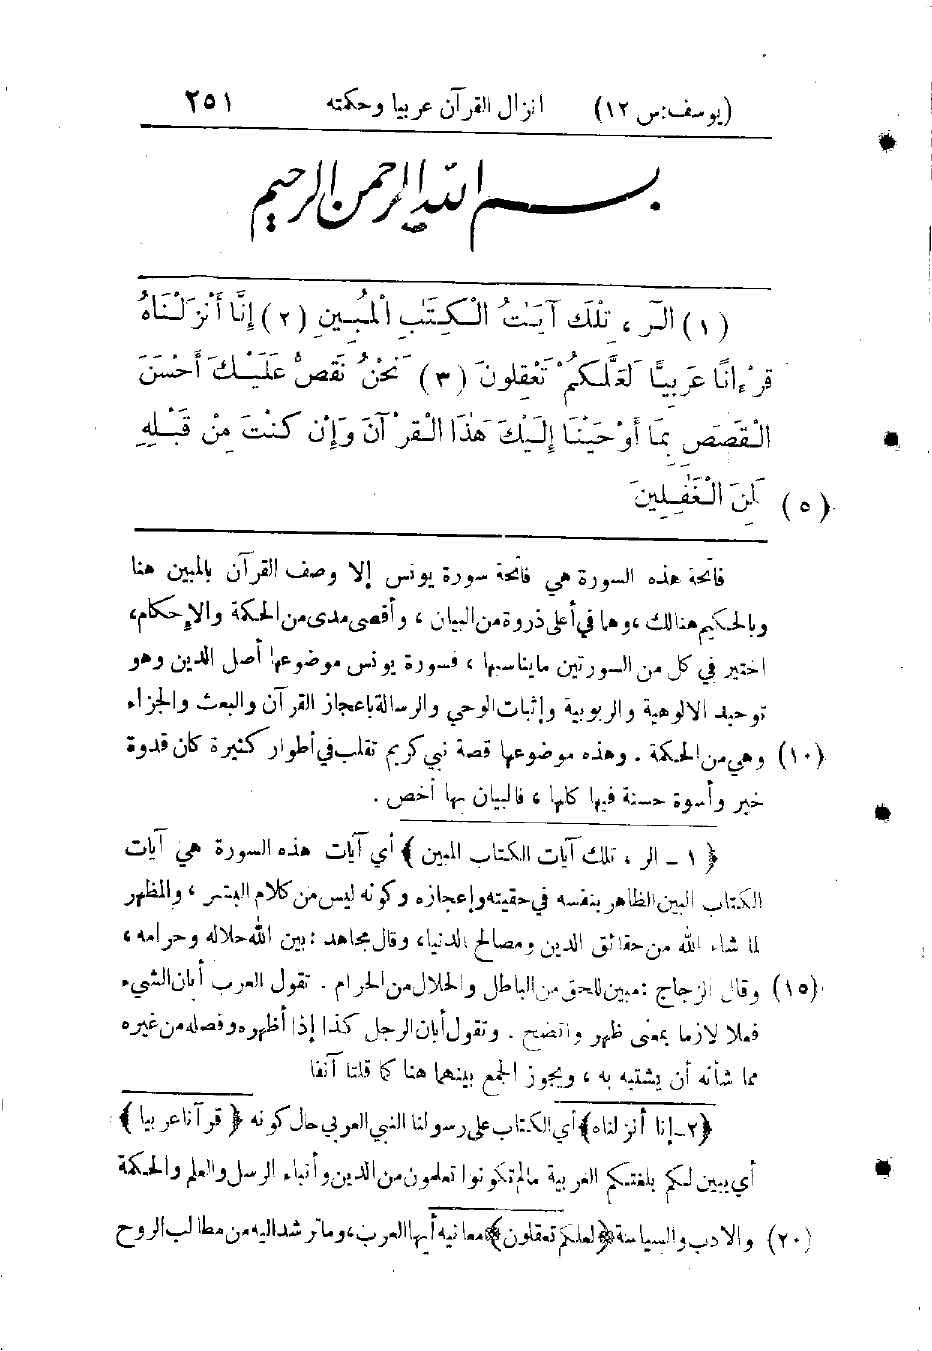 (يوسف:س ١٢) انزال القرآن عربيا وحكمته ٢٥١
بسم الله الرحمن الرحيم
(١) الٓر ، تِلْكَ آيَـٰتُ الْكِتَـٰبِ الْمُبِينِ (٢) إِنَّا أَنْزَلْنَاهُ
قُرْءَانًا عَرَبِيًّا لَعَلَّكُمْ تَعْقِلُونَ (٣) نَحْنُ نَقُصُّ عَلَيْكَ أَحْسَنَ
الْقَصَصِ بِمَا أَوْحَيْنَا إِلَيْكَ هَـٰذَا الْقُرْآنَ وَإِنْ كُنْتَ مِنْ قَبْلِهِ
(٥) لَمِنَ الْغَـٰفِلِينَ
فاتحة هذه السورة هي فاتحة سورة يونس إلا وصف القرآن بالمبين هنا
وبالحكيم هنالك ، وهما في أعلى ذروة من البيان ، وأقصى مدى من الحكمة والإحكام،
اختير في كل من السورتين ما يناسبها ، فسورة يونس موضوعها أصل الدين وهو
توحيد الالوهية والربوبية وإثبات الوحي والرسالة باعجاز القرآن والبعث والجزاء
(١٠) وهي من الحكمة . وهذه موضوعها قصة نبي كريم تقلب في أطوار كثيرة كان قدوة
خير وأسوة حسنة فيها كلها ، فالبيان بها أخص .
﴿ ١ ــ الر ، تلك آيات الكتاب المبين ﴾ أي آيات هذه السورة هي آيات
الكتاب البين الظاهر بنفسه في حقيته وإعجازه وكونه ليس من كلام البشر ، والمظهر
لما شاء الله من حقائق الدين ومصالح الدنيا، وقال مجاهد : بين الله حلاله وحرامه ،
(١٥) وقال الزجاج : مبين للحق من الباطل والحلال من الحرام . تقول العرب أبان الشيء
فعلا لازما بمعنى ظهر واتضح . وتقول أبان الرجل كذا إذا أظهره وفصله من غيره
مما شأنه أن يشتبه به ، ويجوز الجمع بينهما هنا كما قلنا آنفا
﴿٢ــ إنا أنزلناه﴾ أي الكتاب على رسولنا النبي العربي حال كونه ﴿ قرآنا عربيا ﴾
أي يبين لكم بلغتكم العربية ما لم تكونوا تعلمون من الدين وأنباء الرسل والعلم والحكمة
(٢٠) والادب والسياسة ﴿لعلكم تعقلون﴾ معانيه أيها العرب، وما ترشد اليه من مطالب الروح